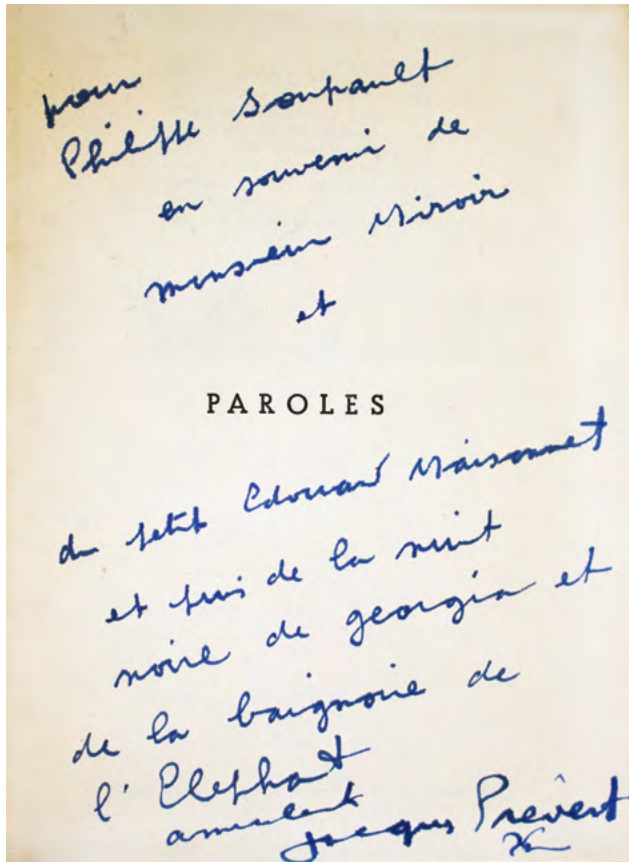 pour
Philippe Soupault
en souvenir de
monsieur Miroir
et
PAROLES
du petit Edouard Maisonnet
et puis de la nuit
noire de georgia et
de la baignoire de
l'Elephant
amicalement
Jacques Prévert